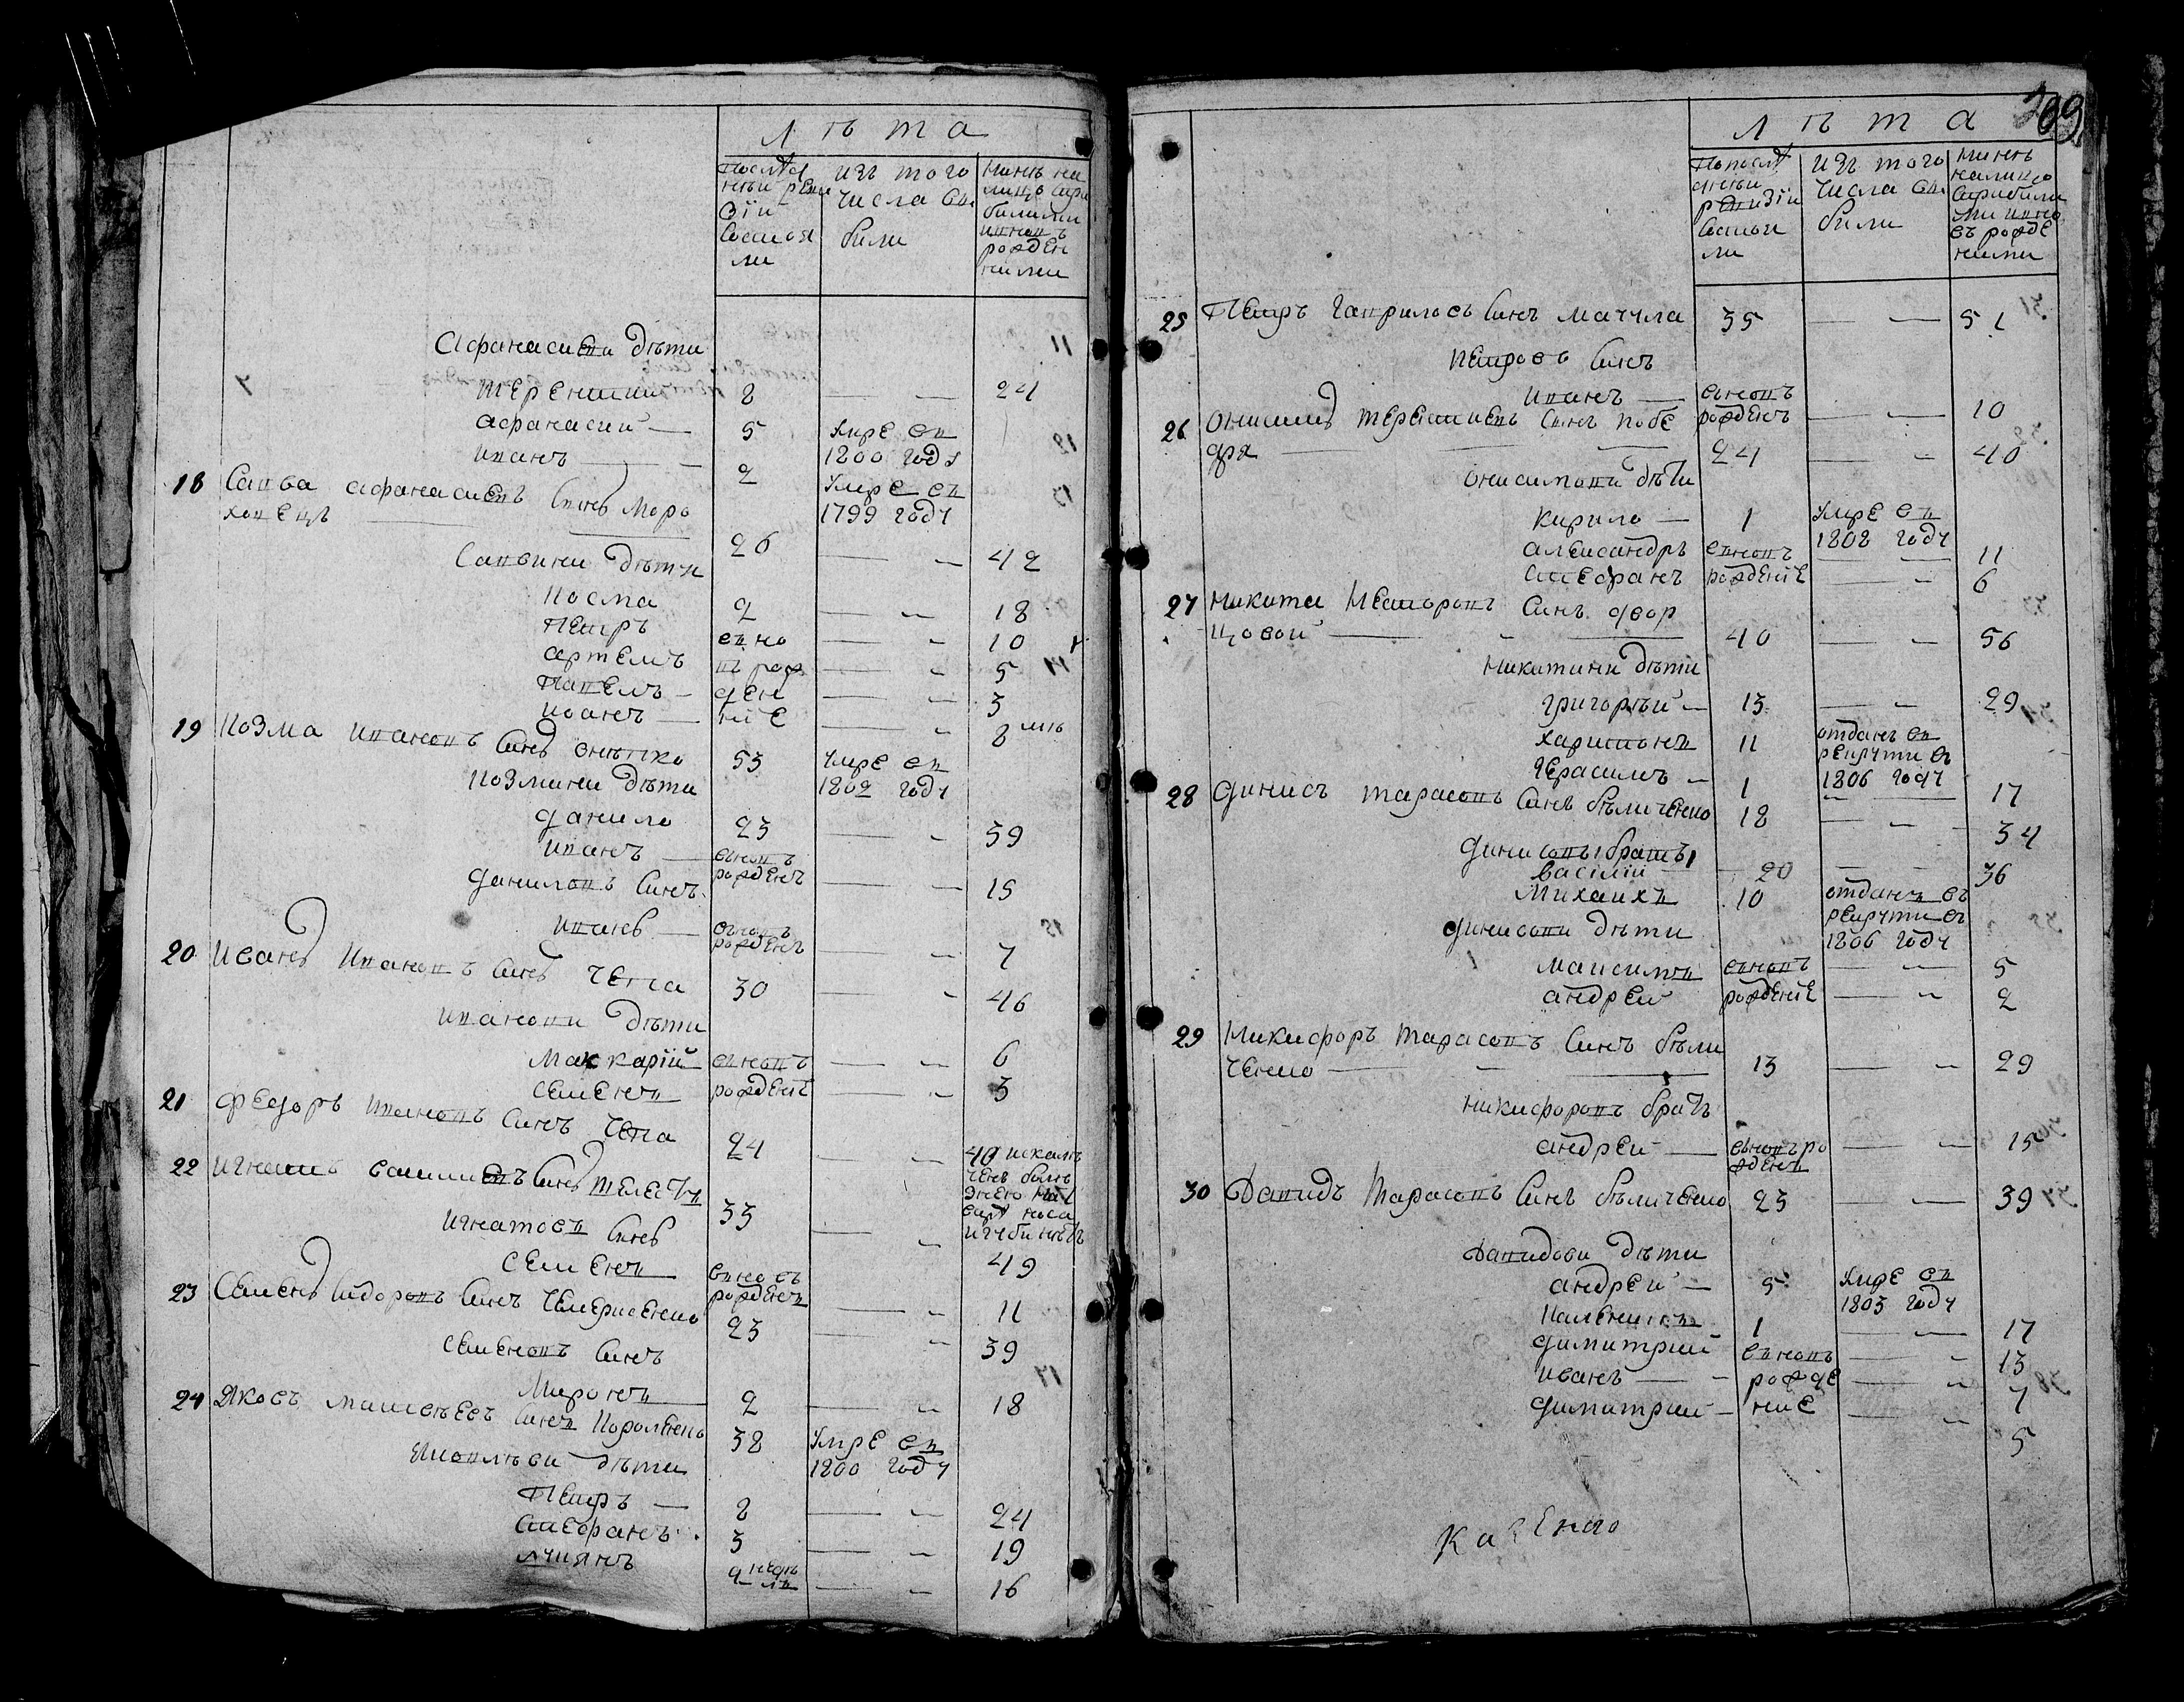 Лѣта
После
днѣи реви
зіи
состоя
ли
изъ того
числа вы
были
Нинѣ на
лицо съ при
былими
и внов ъ
рожден
ними
Афанасиеви дѣти
Терентий 8 — — 24
Афанасий — 5 Умре въ
1800 году
Иванъ — — 2 Умре въ
1799 году
18 Савва Афанасиевъ Синъ Моро
ховецъ — — 26 — — 42
Саввини Дѣти
Косма 2 — — 18
Петръ вно — — 10
Артемъ въ рож — — 5
Павелъ — ден — — 3
Иванъ — ніе — — 8
19 Козма Ивановъ Синъ 53 Умре въ
1802 году
Козмини Дѣти
Данило 23 — — 39
Иванъ — вновъ
рожденъ — — 15
Даниловъ Синъ
Иванъ — вновъ
рожденъ — — 7
20 Иванъ Ивановъ Синъ 30 — — 46
Иванови Дѣти
Маккарій вновъ — — 6
Семенъ рожденіе — — 3
21 Федоръ Ивановъ Синъ 24 — — 40
22 Игнатъ Синъ 33 — — 49
Игнатовъ Синъ
Семенъ вновъ
рожденъ — — 11
23 Семенъ Сидоровъ Синъ 23 — — 39
Семеновъ Синъ
Миронъ 2 — — 18
24 Яковъ Матвѣевъ Синъ Короленко 38 Умре въ
1800 году
Яковлѣви дѣти
Петръ — 8 — — 24
Стефанъ 3 — — 19
Лукянъ — — 16
109
Лѣта
По послѣ
днѣи
ревизіи
состоя
ли
изъ того
числа вы
были
Нинѣ
налицо
съ прибили
ми и вно
въ рожде
ними
25 Петръ Гавриловъ Синъ 35 — — 51
Петровъ Синъ
Иванъ — вновъ
рожденъ — — 10
26 Онисимъ Терентиевъ Синъ 24 — — 40
Онисимови дѣти
Кирило — 1 Умре въ
1808 году
Александръ вновъ 11
Стефанъ рожденіе — — 6
27 Никита Несторовъ Синъ двор
цовой — — 40 — — 56
Никитини дѣти
Григорѣй — 13 — — 29
Харитонъ 11 отданъ въ
рекрути въ
1806 году
Герасимъ — 1 — — 17
28 Динисъ Тарасовъ Синъ Бѣличенко 18 — — 34
Динисови брати
Василій — 20 — — 36
Михаилъ 10 отданъ въ
рекрути въ
1806 году
Динисови Дѣти
Максимъ вновъ — — 5
Андрей рожденіе — — 2
29 Никифоръ Тарасовъ Синъ Бѣли
ченко — — 13 — — 29
Никифоровъ братъ
Андрей — вновъ ро
жденъ — — 15
30 Давидъ Тарасовъ Синъ Бѣличенко 23 — — 39
Давидови Дѣти
Андрей — 5 Умре въ
1803 году
Каленикъ 1 — — 17
Димитрий вновъ — — 13
Иванъ — — рожде — — 7
Димитрий — ние — — 5